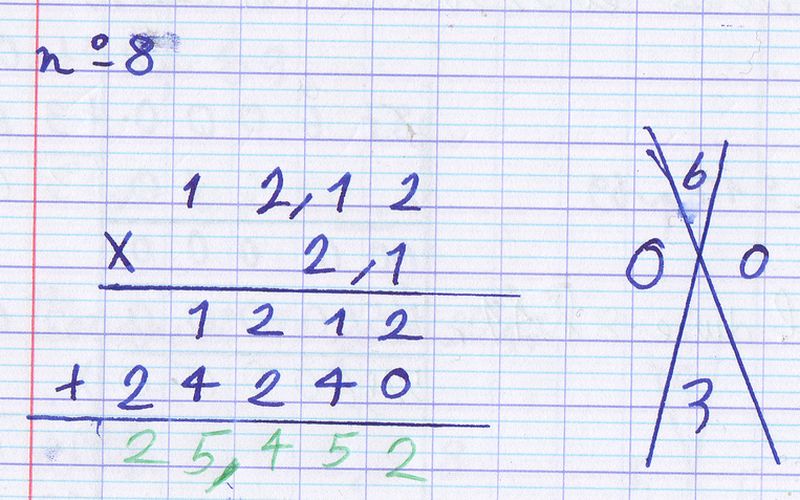 nº 8
1 2,1 2
X 2,1
1 2 1 2
+ 2 4 2 4 0
2 5,4 5 2
6
0 0
3